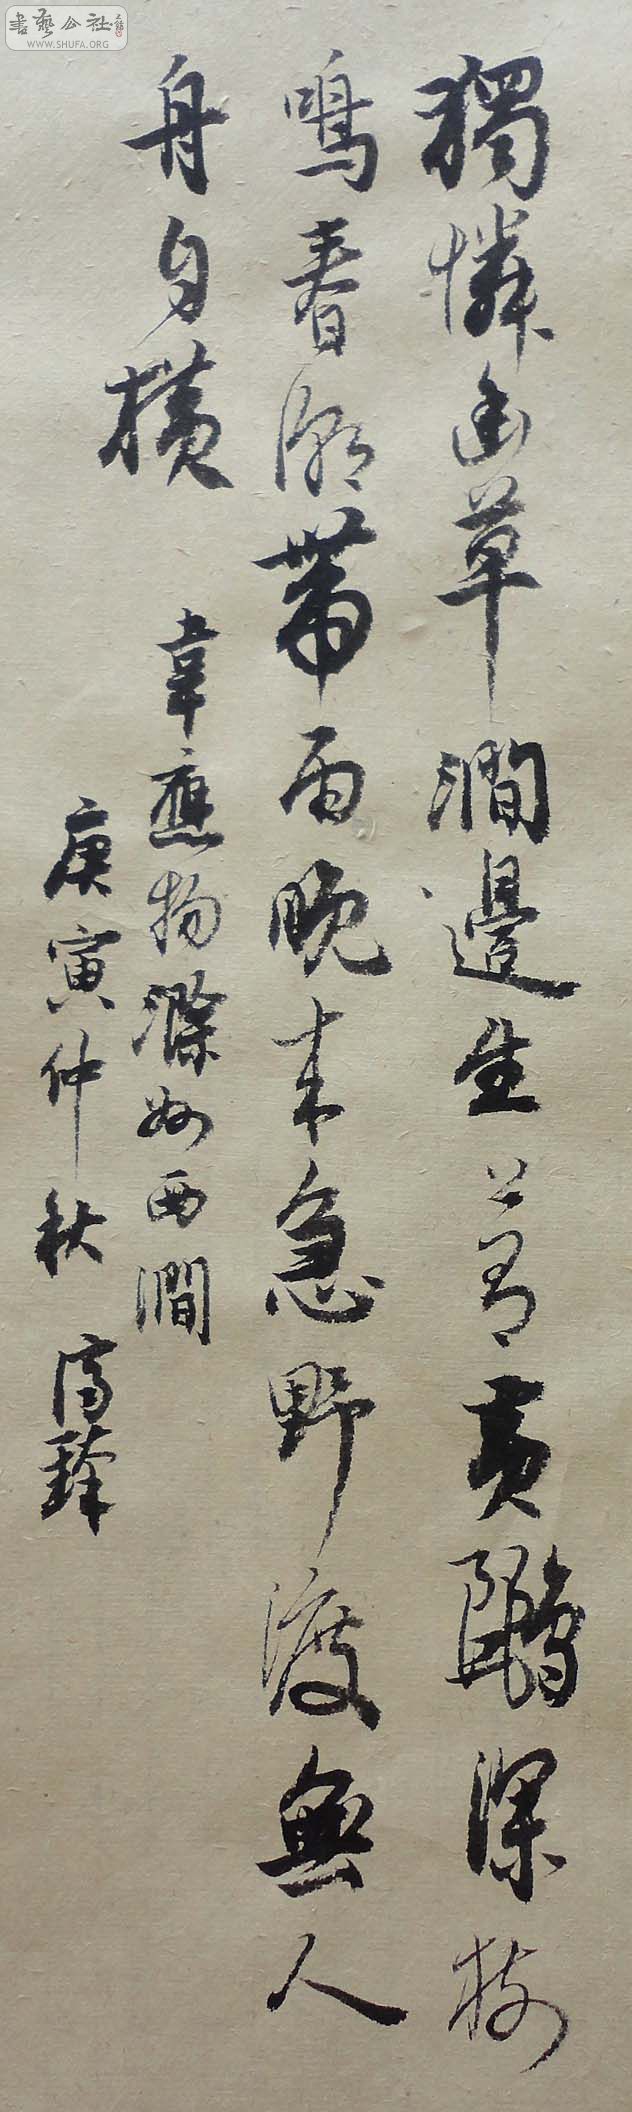 獨憐幽草澗邊生上有黄鸝深樹
鳴春潮帶雨晚来急野渡無人
舟自橫
韋應物滁州西澗
庚寅仲秋
書藝公社
WWW.SHUFA.ORG